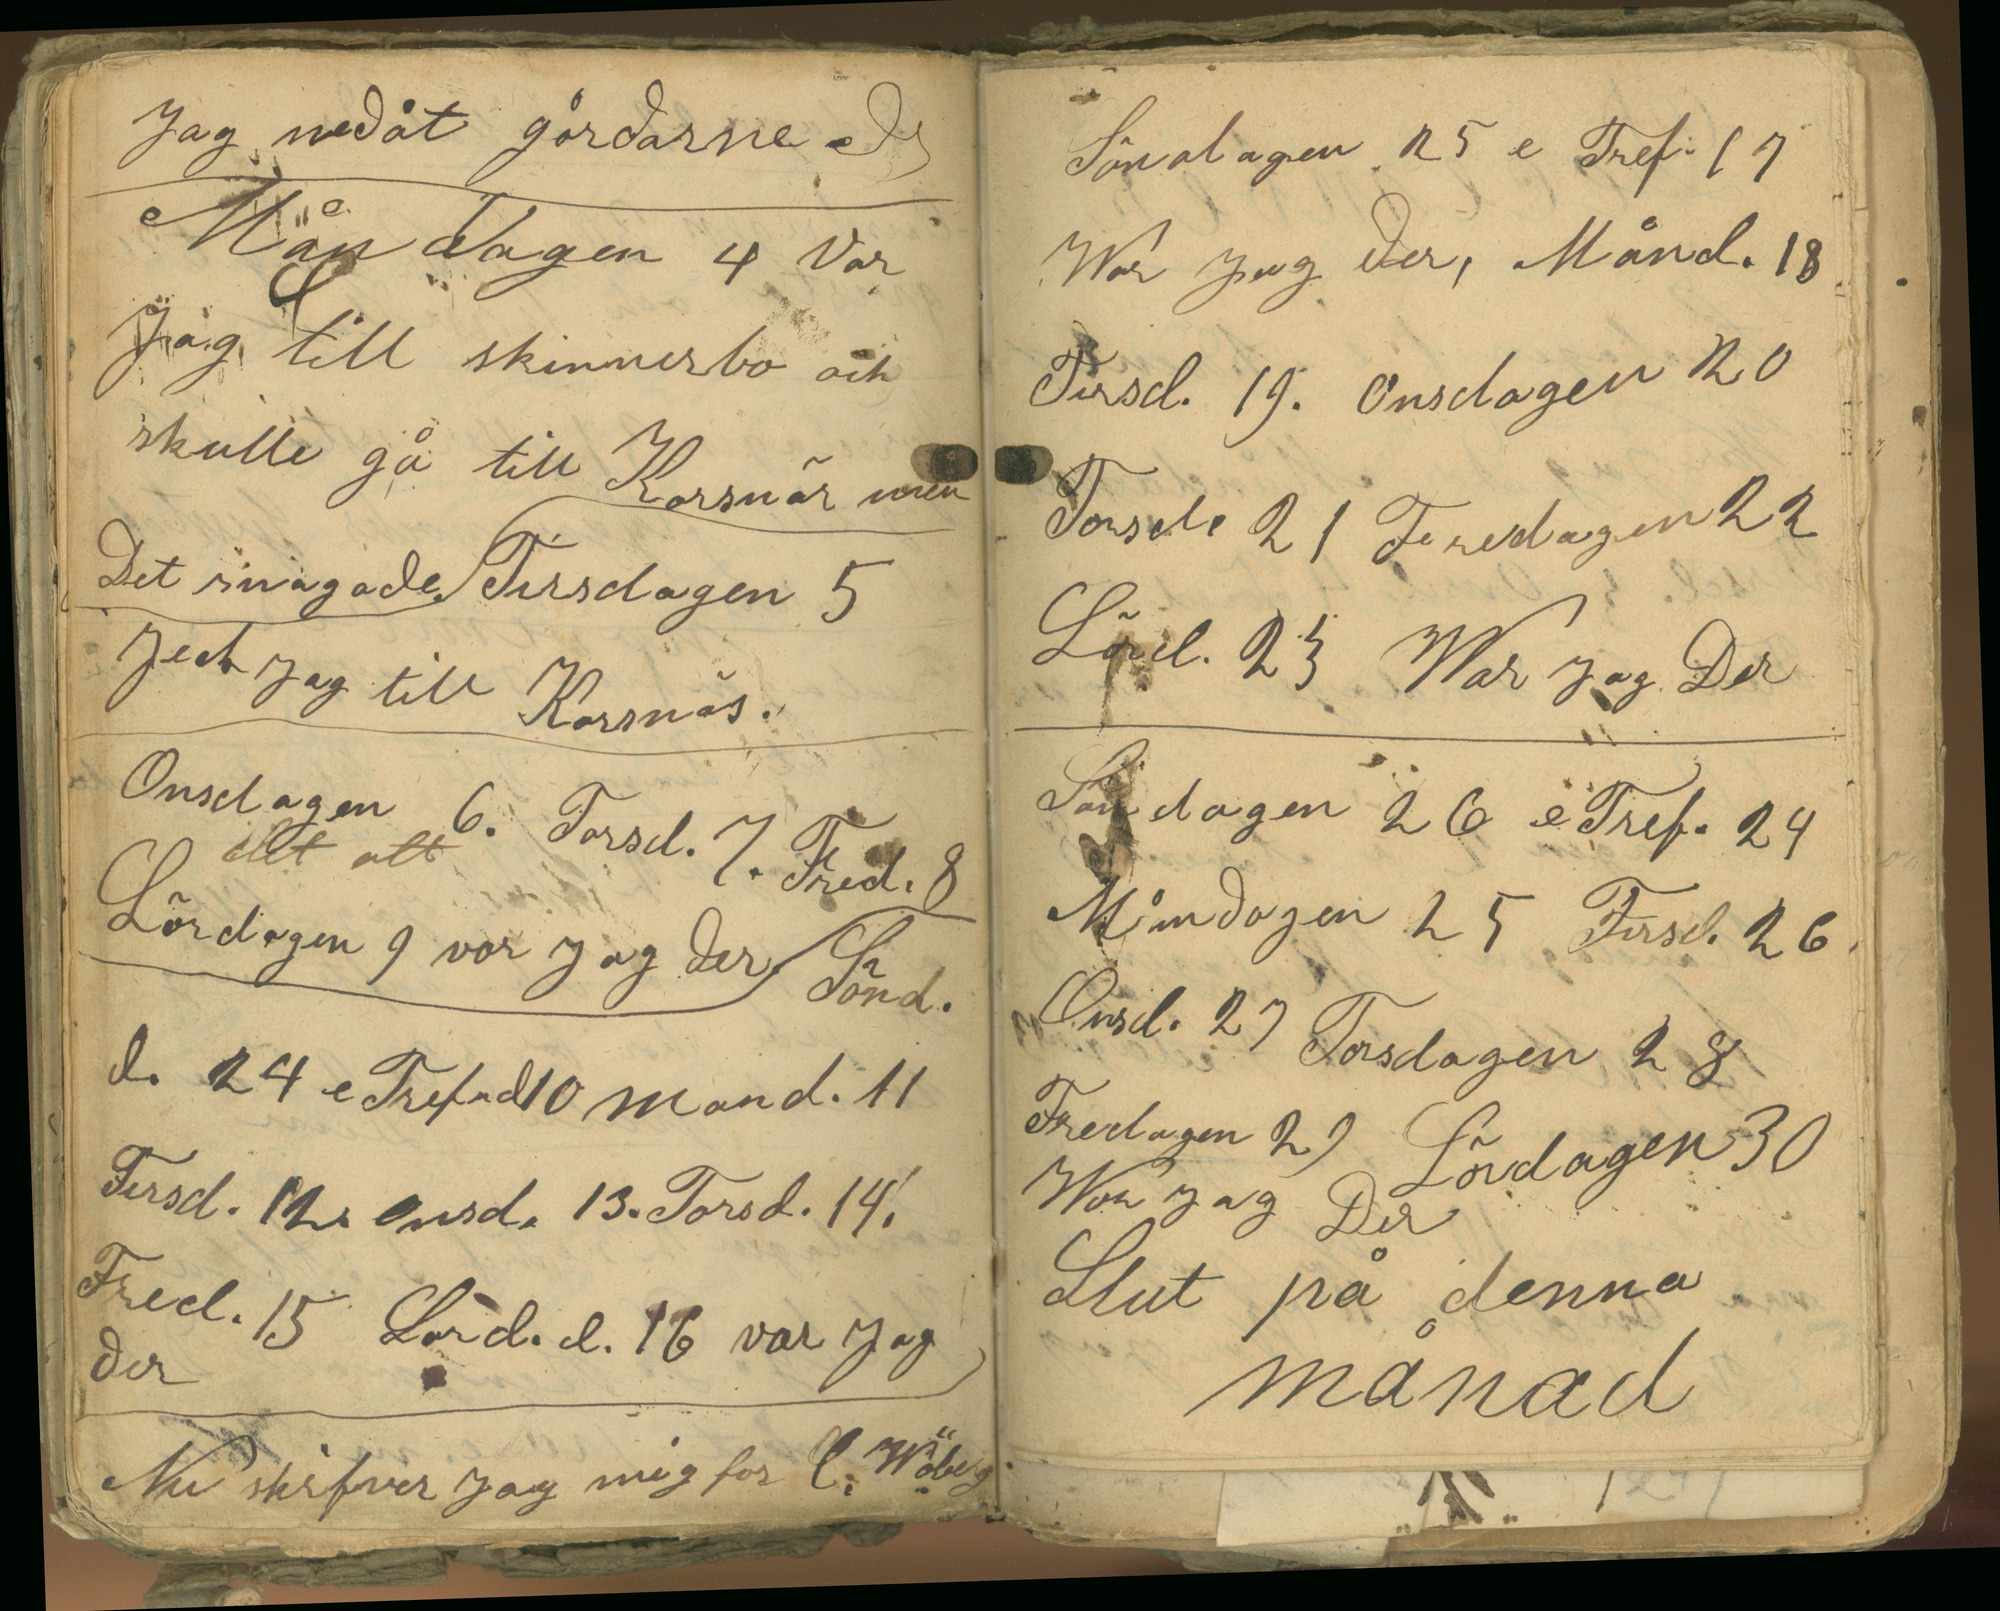 Jag nedåt gårdarne
Måndagen 4 Var
Jag till skinnerbo och
skulle gå till Korsnär men
Det snögade. Tirsdagen 5
Jeck Jag till Korsnäs.
Onsdagen 6. Torsd. 7. Fred. 8
det att
Lördagen 9 var Jag der. Sönd.
d. 24 e Tref. d 10 Mand. 11
Tirsd. 12. onsd. 13. Torsd. 14.
Fred. 15 Lörd. d. 16 var Jag
der
Nu skrifver Jag mig for C. Wöberg
Söndagen 25 e Tref. 17
War Jag der, Månd. 18
Tirsd. 19. Onsdagen 20
Torsd. 21 Feredagen 22
Lörd. 23 War Jag Der
Söndagen 26 e Tref. 24
Måndagen 25 Tirsd. 26.
Onsd. 27 Torsdagen 28
Fredagen 29 Lördagen 30
War Jag Der
Slut på denna
månad